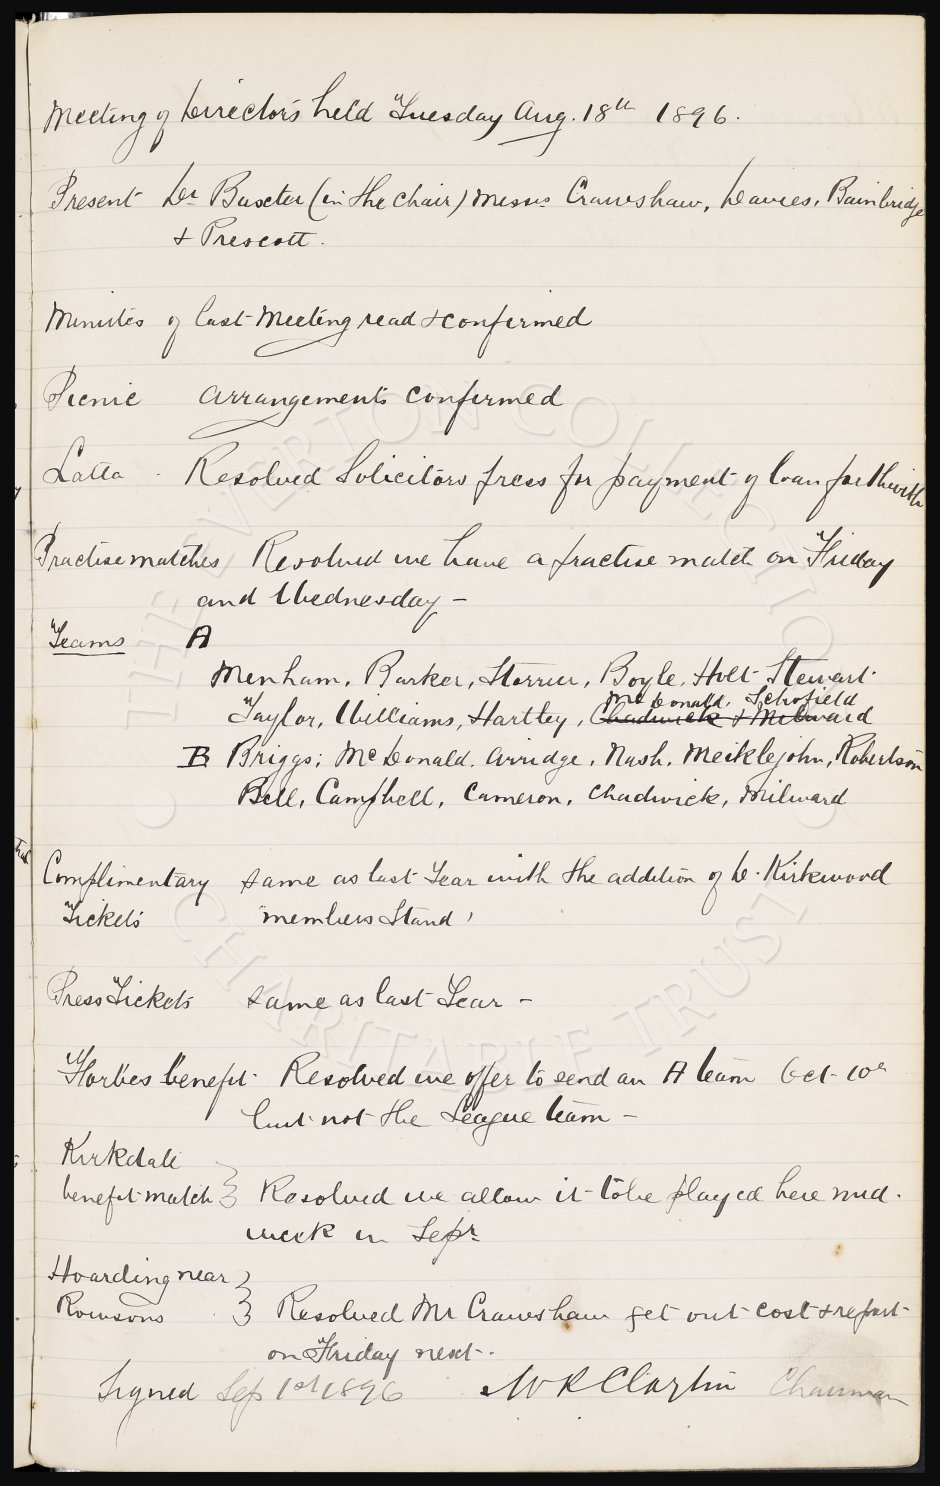 Meeting of Directors held Tuesday Aug. 18th 1896.
Present Dr Baxter (in the chair) Messrs Crawshaw, Davies, Bainbridge
& Prescott.
Minutes of last Meeting read & confirmed
Picnic arrangements confirmed
Latta - Resolved Solicitors press for payment of loan forthwith
Practise matches Resolved we have a practise match on Friday
and Wednesday -
Teams A
Menham, Barker, Storrier, Boyle, Holt Stewart
McDonald, Schofield
Taylor, Williams, Hartley, Chadwick & Milward
B Briggs; McDonald, Arridge, Nash, Meiklejohn, Robertson
Bell, Campbell, Cameron, Chadwick, Milward
Complimentary same as last Year with the addition of D. Kirkwood
Tickets 'members Stand'
Press Tickets same as last Year -
benefit Resolved we offer to send an A team Oct 10th
but not the League team -
Kirkdale
benefit match } Resolved we allow it to be played here mid.
week in Sepr
Hoarding near }
} Resolved Mr Crawshaw get out cost & report
on Friday next.
Signed Sep 1st 1896 Chairman
THE EVERTON COLLECTION
CHARITABLE TRUST